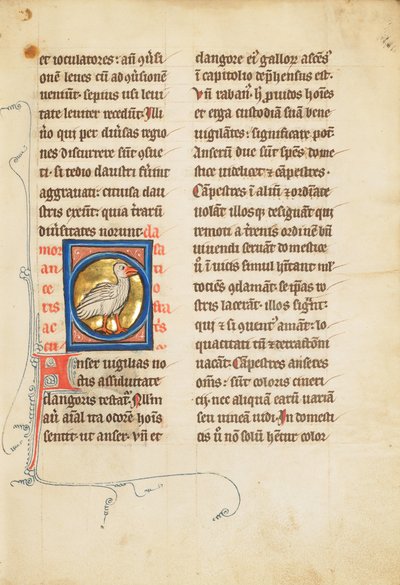 et ioculatores: an̄ ɔu̓si
onē leues cū ad ɔu̓sionē
ueniūt. sepius usi leui
tate leuiter recedūt. Illi
ũo qui per diu̓sas regio
nes discurrere sūt ɔsue
ti. si tedio claustri fu̓int
aggrauati. citius a clau
stris exeūt. quia t̓rarū
diu̓sitates norunt. cla
mor
an
se
ris
ac
Anser uigilias no
ctis assiduitate
clangoris testat̓. Nllm̄
aū aīal ita odorē hoīs
sentit ut anser. Vn̄ et
clangore ei᷒ galloꝝ ascēs᷒
ī capitolio dep̄hensus est.
Vn̄ raban᷒. h̓ ꝓuidos hoīes
et erga custodiā suā bene
uigilantes. significare pōt.
Anserū due sūt sp̄es. dome
stice uidelicet ⁊ cāpestres.
Cāpestres ī altū ⁊ ordīate
uolāt. illosq; designāt. qui
remoti a t̓renis ordinē bn̄
uiuendi seruāt. domestice
ũ ī uicis simul hītant. ml̓
tociēs ɔclamāt. se ip̄as ro
stris lacerāt. illos sigīt.
qui ⁊ si ɔuent᷒ amāt. lo
quacitati tn̄ ⁊ detractiōni
uacāt. Cāpestres anseres
oīns. sūt coloris cineri
cij. nec aliquā earū uariā
seu niueā uidi. In domesti
cis ũ nō solū hētur color